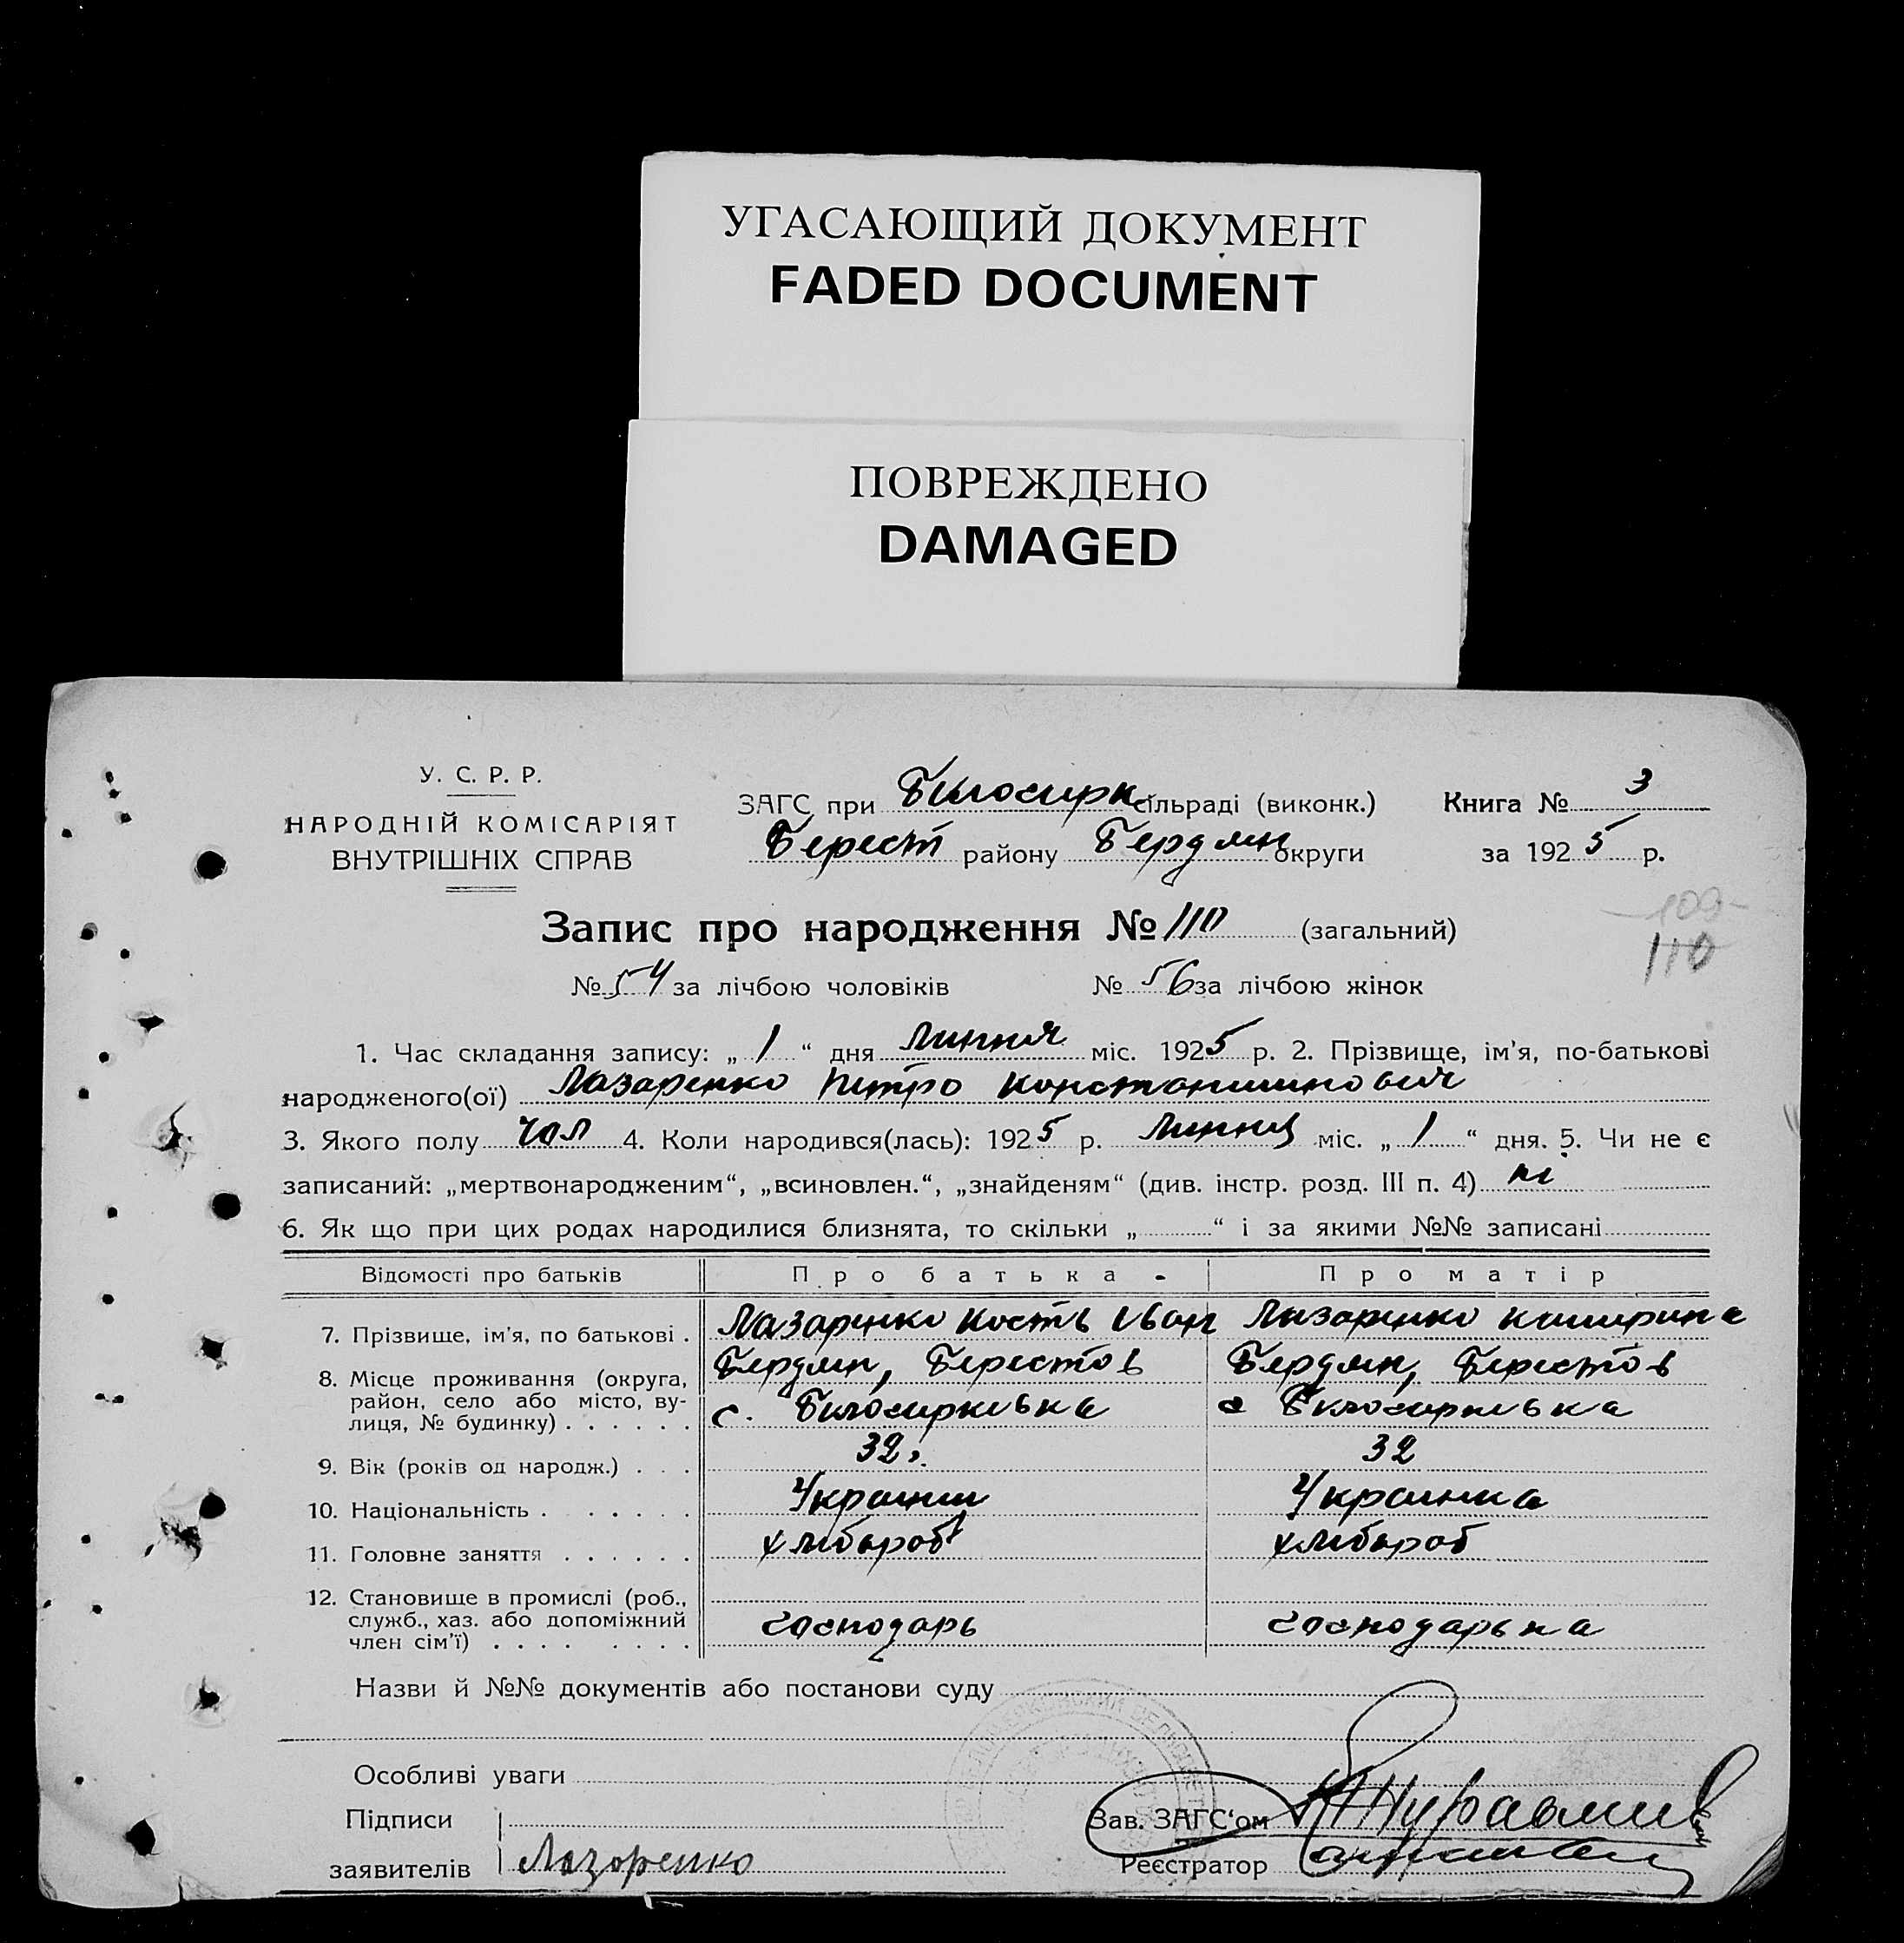 УГАСАЮЩИЙ ДОКУМЕНТ
FADED DOCUMENT
ПОВРЕЖДЕНО
DAMAGED
У. С. Р. Р.
НАРОДНІЙ КОМІСАРІЯТ
ВНУТРІШНІХ СПРАВ
ЗАГС при Билосирк сільраді (виконк.) Книга № 3
Берест району Бердян округи за 1925 р.
Запис про народження № 110 (загальний)
109
110
№ 54 за лічбою чоловіків № 56 за лічбою жінок
1. Час складання запису: „ 1 “ дня Липня міс. 1925 р. 2. Прізвище, ім'я, по-батькові
народженого(ої) Лазаренко Петро Константинович
3. Якого полу чол 4. Коли народився(лась): 1925 р. Липня міс. „ 1 “ дня. 5. Чи не є
записаний: „мертвонародженим“, „всиновлен.“, „знайденям“ (див. інстр. розд. III п. 4) ні
6. Як що при цих родах народилися близнята, то скільки „ “ і за якими №№ записані
Відомості про батьків Про батька Про матір
7. Прізвище, ім'я, по батькові . Лазаренко Кость Іван Лазаренко Катирина
8. Місце проживання (округа, район, село або місто, вулиця, № будинку) Бердян, Берестов Бердян, Берестов
с. Билосиркивка с Билосиркивка
9. Вік (років од народж.) . . . 32 32
10. Національність Украинец Украинка
11. Головне заняття хлибороб хлибороб
12. Становище в промислі (роб.,
служб., хаз. або допоміжний
член сім'ї) господарь господарька
Назви й №№ документів або постанови суду
Особливі уваги
Підписи
Зав. ЗАГС'ом
заявителів Лазоренко
Реєстратор